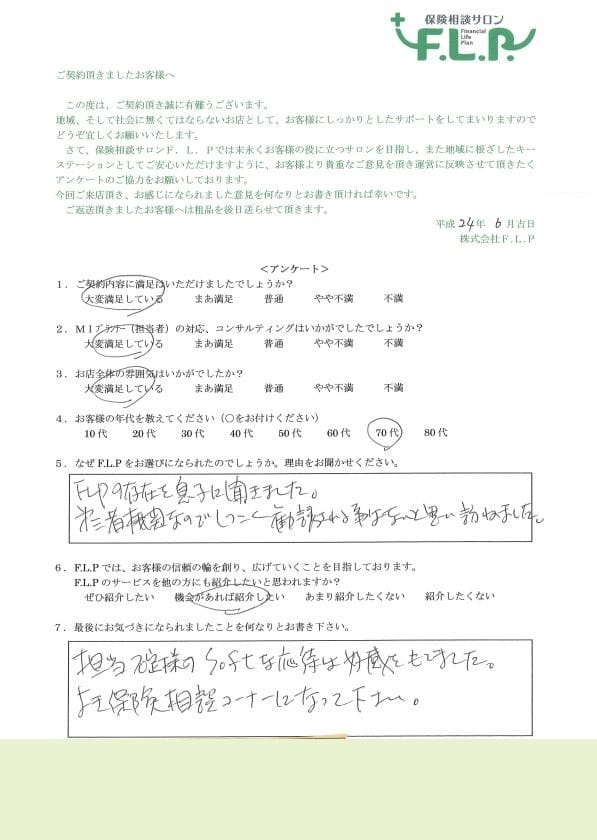 保険相談サロン
Financial Life Plan
F.L.P.
ご契約頂きましたお客様へ
この度は、ご契約頂き誠に有難うございます。
地域、そして社会に無くてはならないお店として、お客様にしっかりとしたサポートをしてまいりますので
どうぞ宜しくお願いいたします。
さて、保険相談サロンF．L．Pでは末永くお客様の役に立つサロンを目指し、また地域に根ざしたキー
ステーションとしてご安心いただけますように、お客様より貴重なご意見を頂き運営に反映させて頂きたく
アンケートのご協力をお願いしております。
今回ご来店頂き、お感じになられました意見を何なりとお書き頂ければ幸いです。
ご返送頂きましたお客様へは粗品を後日送らせて頂きます。
平成 24年 6月吉日
株式会社F.L.P
＜アンケート＞
１．ご契約内容に満足はいただけましたでしょうか？
大変満足している まあ満足 普通 やや不満 不満
２．MIプランナー（担当者）の対応、コンサルティングはいかがでしたでしょうか？
大変満足している まあ満足 普通 やや不満 不満
３．お店全体の雰囲気はいかがでしたか？
大変満足している まあ満足 普通 やや不満 不満
４．お客様の年代を教えてください（○をお付けください）
10代 20代 30代 40代 50代 60代 70代 80代
５．なぜF.L.Pをお選びになられたのでしょうか。理由をお聞かせください。
FLPの存在を息子に聞きました。
第三者機関なのでしつこく勧誘される事はないと思い訪ねました。
６．F.L.Pでは、お客様の信頼の輪を創り、広げていくことを目指しております。
F.L.Pのサービスを他の方にも紹介したいと思われますか？
ぜひ紹介したい 機会があれば紹介したい あまり紹介したくない 紹介したくない
７．最後にお気づきになられましたことを何なりとお書き下さい。
担当 様のsoftな応待は好感をもてました。
保険相談コーナーになって下さい。